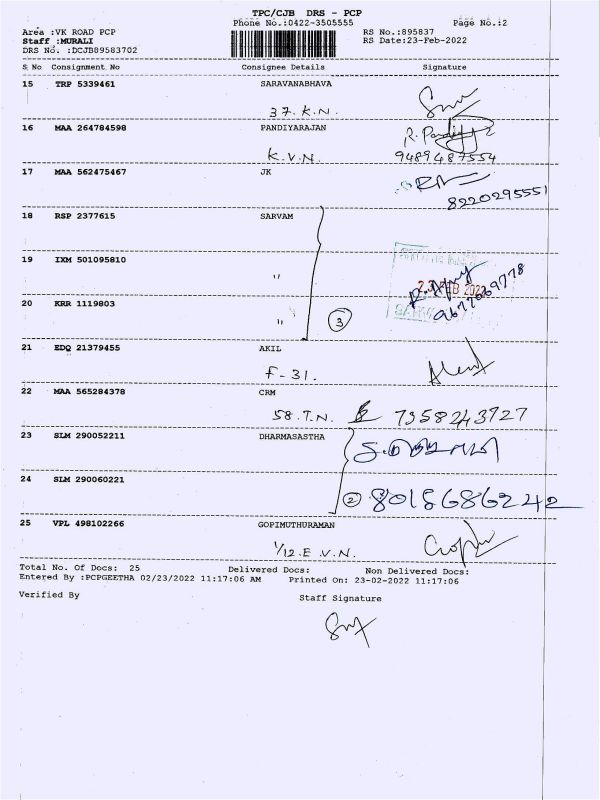 TPC/CJB DRS - PCP
Phone No.:0422-3505555 Page No.:2
Area :VK ROAD PCP RS No.:895837
Staff :MURALI RS Date:23-Feb-2022
DRS No. :DCJB89583702
S No Consignment No Consignee Details Signature
15 TRP 5339461 SARAVANABHAVA
37. K.N.
16 MAA 264784598 PANDIYARAJAN
K.V.N. 9489487554
17 MAA 562475467 JK
8220295551
18 RSP 2377615 SARVAM
19 IXM 501095810
"
23 FEB 2022
9677669778
20 KRR 1119803
" 3
21 EDQ 21379455 AKIL
F-31.
22 MAA 565284378 CRM
58.T.N. 7358243727
23 SLM 290052211 DHARMASASTHA
24 SLM 290060221
2 8015686242
25 VPL 498102266 GOPIMUTHURAMAN
1/12.E V.N.
Total No. Of Docs: 25 Delivered Docs: Non Delivered Docs:
Entered By :PCPGEETHA 02/23/2022 11:17:06 AM Printed On: 23-02-2022 11:17:06
Verified By Staff Signature